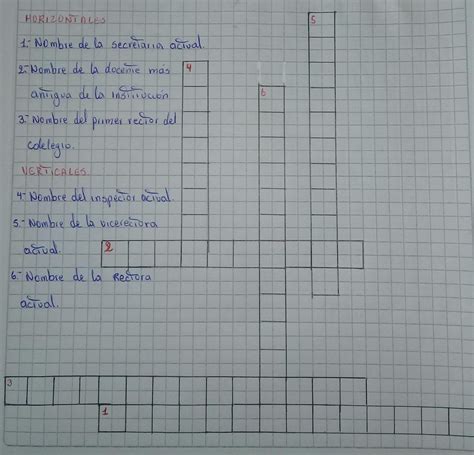 HORIZONTALES
1.- Nombre de la secretaria actual.
2.- Nombre de la docente más
antigua de la institución
3.- Nombre del primer rector del
colelegio.
VERTICALES
4.- Nombre del inspector actual.
5.- Nombre de la vicerectora
actual.
6.- Nombre de la Rectora
actual.
5
4
6
2
3
1